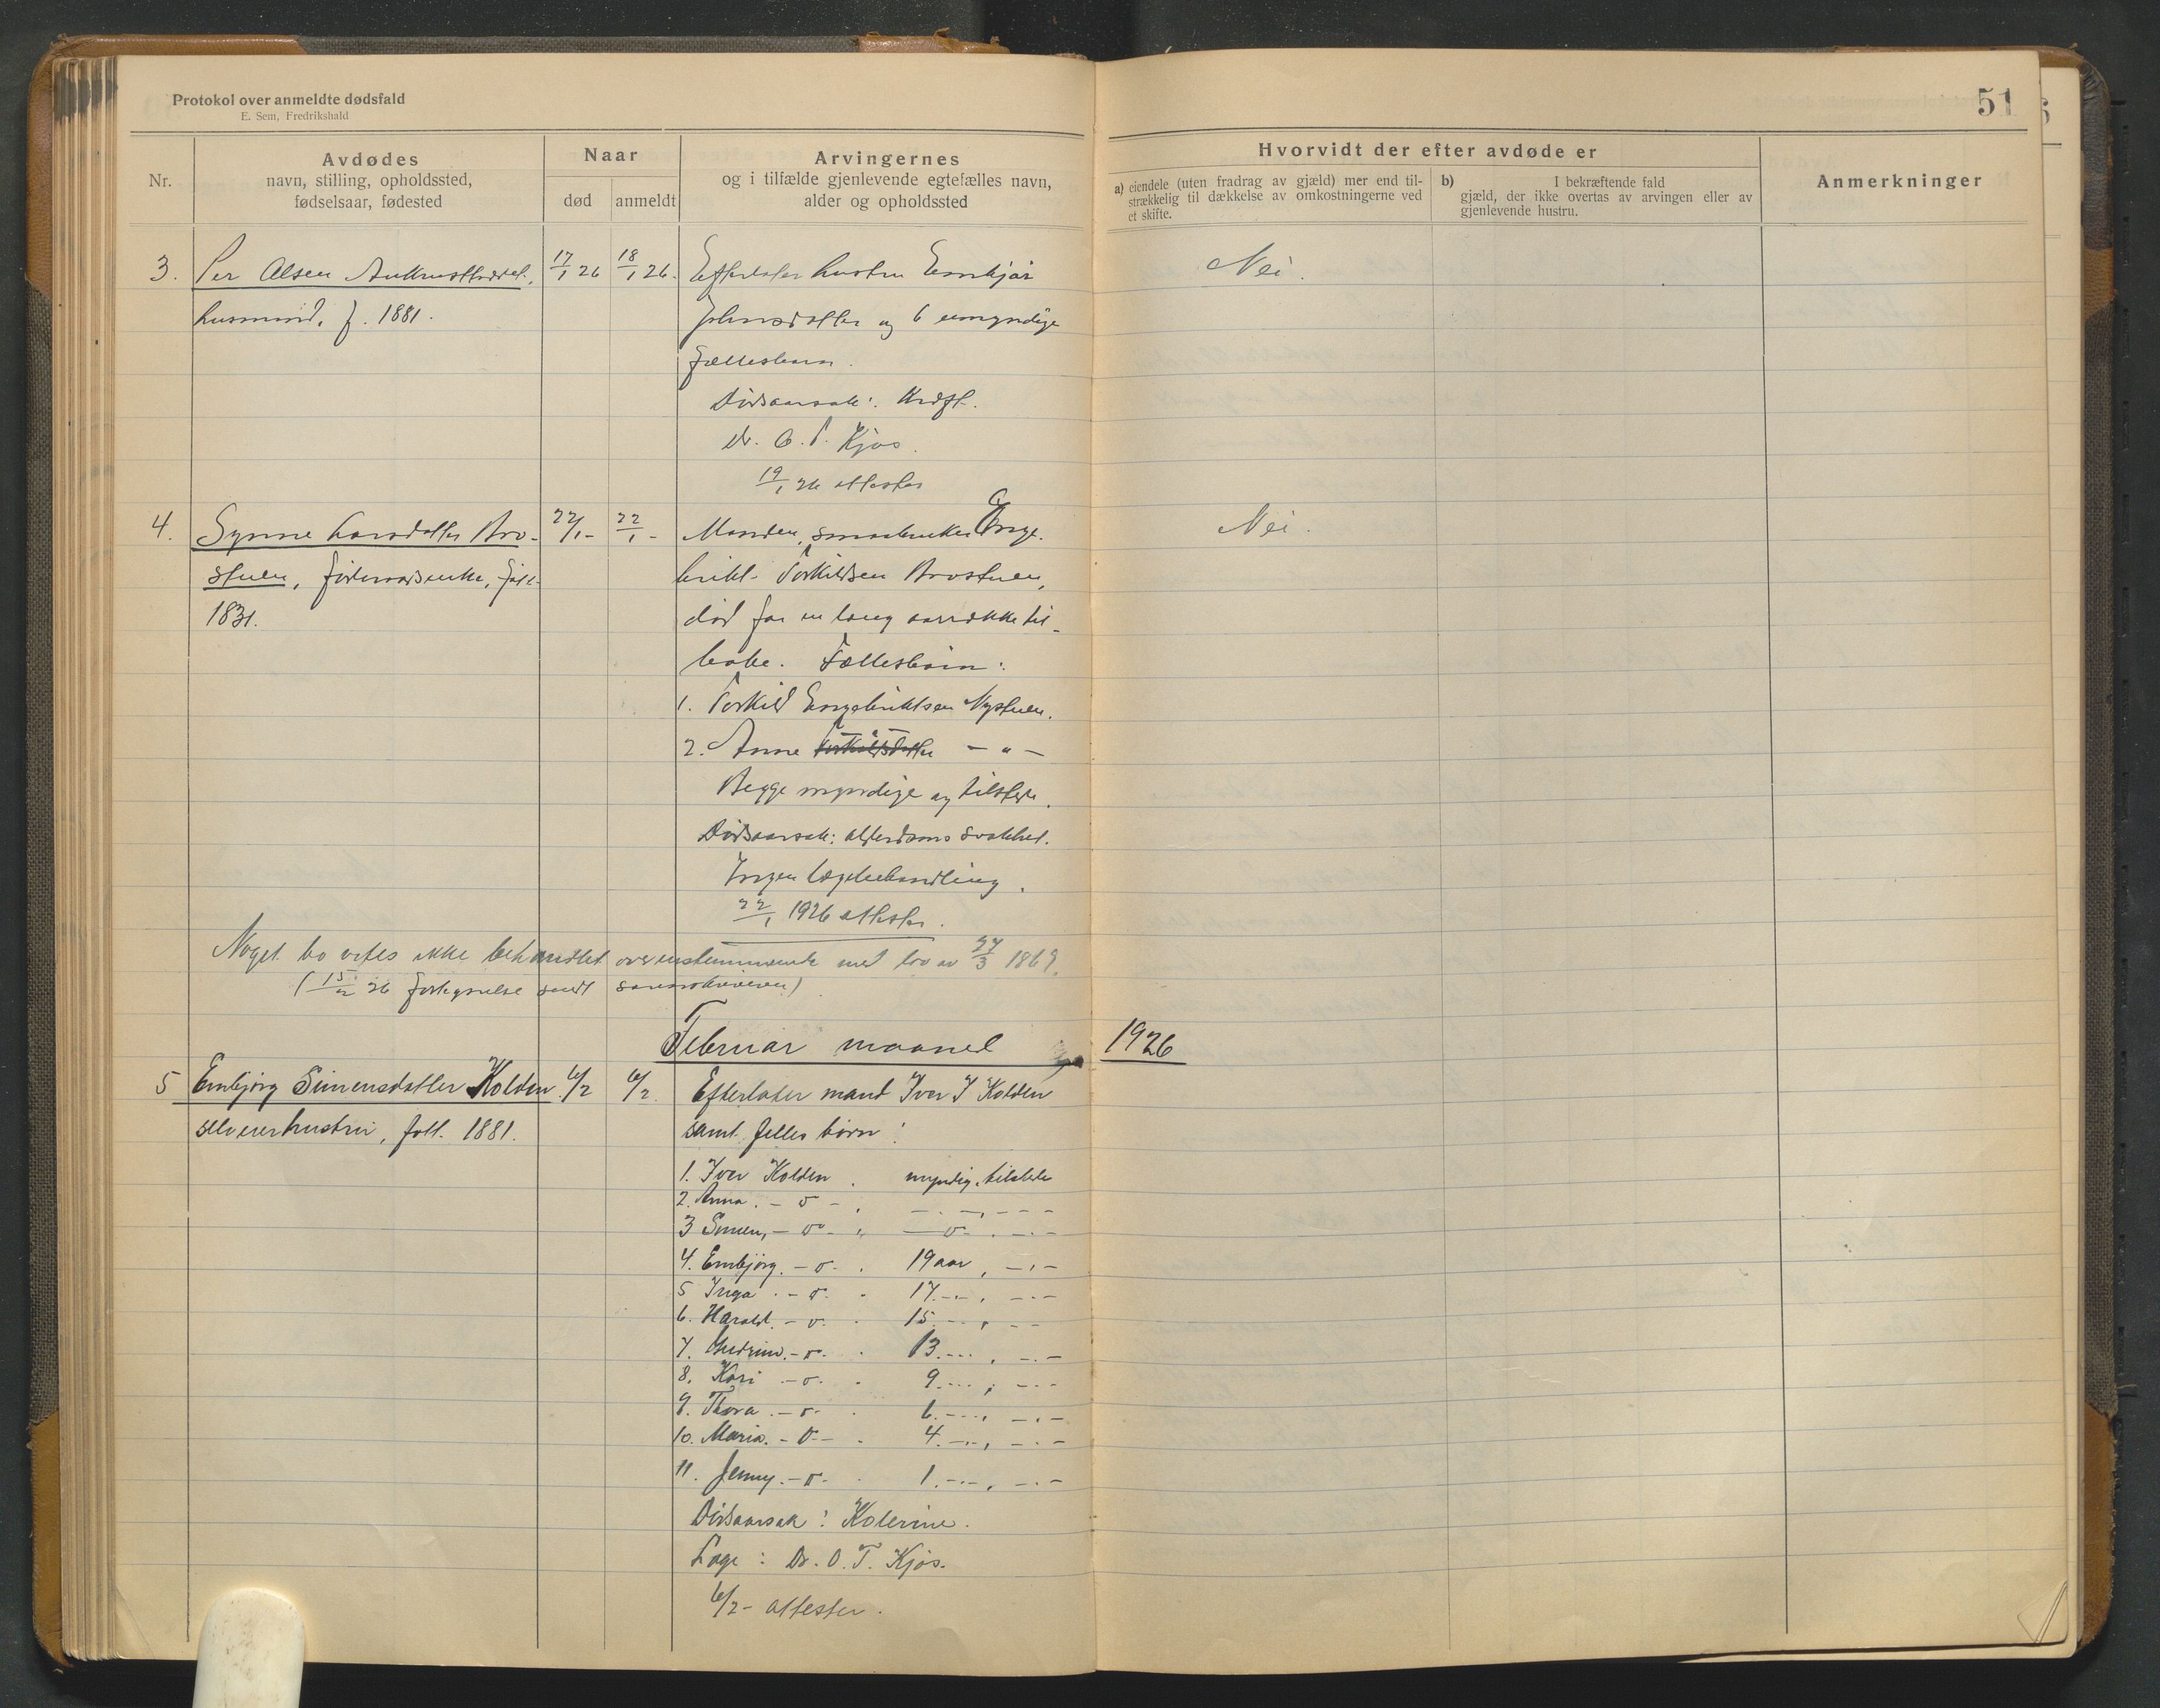 Protokol over anmeldte dødsfald
E. Sem, Fredrikshald
51
Nr.
Avdødes
navn, stilling, opholdssted,
fødselsaar, fødested
Naar
død
anmeldt
Arvingernes
og i tilfælde gjenlevende egtefælles navn,
alder og opholdssted
Hvorvidt der efter avdøde er
a) eiendele (uten fradrag av gjæld) mer end til-
strækkelig til dækkelse av omkostningerne ved
et skifte.
b) I bekræftende fald
gjæld, der ikke overtas av arvingen eller av
gjenlevende hustru.
Anmerkninger
3. Per Olsen 17/1 26 18/1 26. Efterlater hustru Embjør Nei.
husmand, f. 1881. Johnsdatter og 6 umyndige
fællesbarn.
Dødsaarsak: Kræft.
Dr. O. T. Kjos.
19/1 26 attester
4. Synne Larsdatter Bro- 22/1- 22/1- Manden, smaabruker Enge- Nei.
stuen, føderaadsenke, født brikt Torkildsen Brostuen,
1831. død for en lang aarrække til-
bake. Fællesbørn:
1. Torkild Engebriktsen Nystuen.
2. Anne Torkildsdatter - " -
Begge myndige og tilstede.
Dødsaarsak: alderdoms svakhet.
Ingen lægebehandling.
22/1 1926 attester.
Noget bo vites ikke behandlet overensstemmende med lov av 27/3 1869.
(15/2 26 sendt sorenskriveren)
Februar maaned 1926
5 Embjørg Simensdatter Kolden 6/2 6/2. Efterlater mand Iver I Kolden
selveierhustru, født. 1881. samt felles børn:
1. Iver Kolden. myndig, tilstede
2. Anna. - o - , - . - , - - -
3 Simen, - o - " - o - . - . -
4. Embjørg. - o - . 19 aar, - , -
5 Inga . - o - . 17. - . - , - . -
6. Harald. - o - . 15. - - , - -
7. Gudrun. - o - . 13. - - - , - . -
8. Kari . - o - . 9. - - - , - . -
9. Thora . - o - . 6. - - - , - . -
10. Maria. - o - . 4. - . - , - . -
11. Jenny. - o - . 1. - . - , - . -
Dødsaarsak: Kolerine.
Læge: Dr. O. T. Kjos.
6/2- attester.